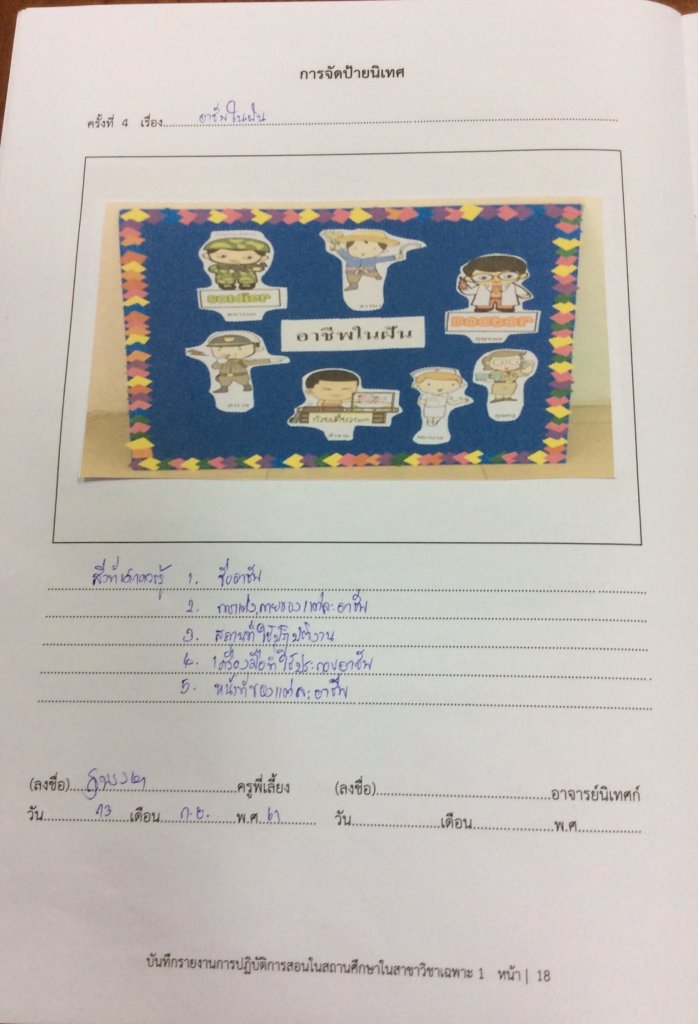 การจัดป้ายนิเทศ
ครั้งที่ 4 เรื่อง อาชีพในฝัน
SOLDIER
DOCTOR
อาชีพในฝัน
ตำรวจ
พยาบาล
คุณครู
สิ่งที่เด็กควรรู้ 1. ชื่ออาชีพ
2. การแต่งกายของแต่ละอาชีพ
3. สถานที่ใช้ปฏิบัติงาน
4. เครื่องมือที่ใช้ประกอบอาชีพ
5. หน้าที่ของแต่ละอาชีพ
(ลงชื่อ) ครูพี่เลี้ยง (ลงชื่อ) อาจารย์นิเทศก์
วัน 13 เดือน ก.ย. พ.ศ 61 วัน เดือน พ.ศ
บันทึกรายงานการปฏิบัติการสอนในสถานศึกษาในสาขาวิชาเฉพาะ 1 หน้า | 18